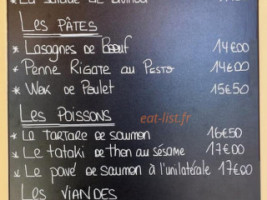 Les PÂTES
* Lasagnes de Boeuf 14€00
* Penne Rigate au Pesto 14€00
* Wok de Poulet 15€50
Les Poissons
eat-list.fr
* Le tartare de saumon 16€50
* Le tataki de thon au sésame 17€00
* Le pavé de saumon à l'unilatérale 17€00
Les VIANDES